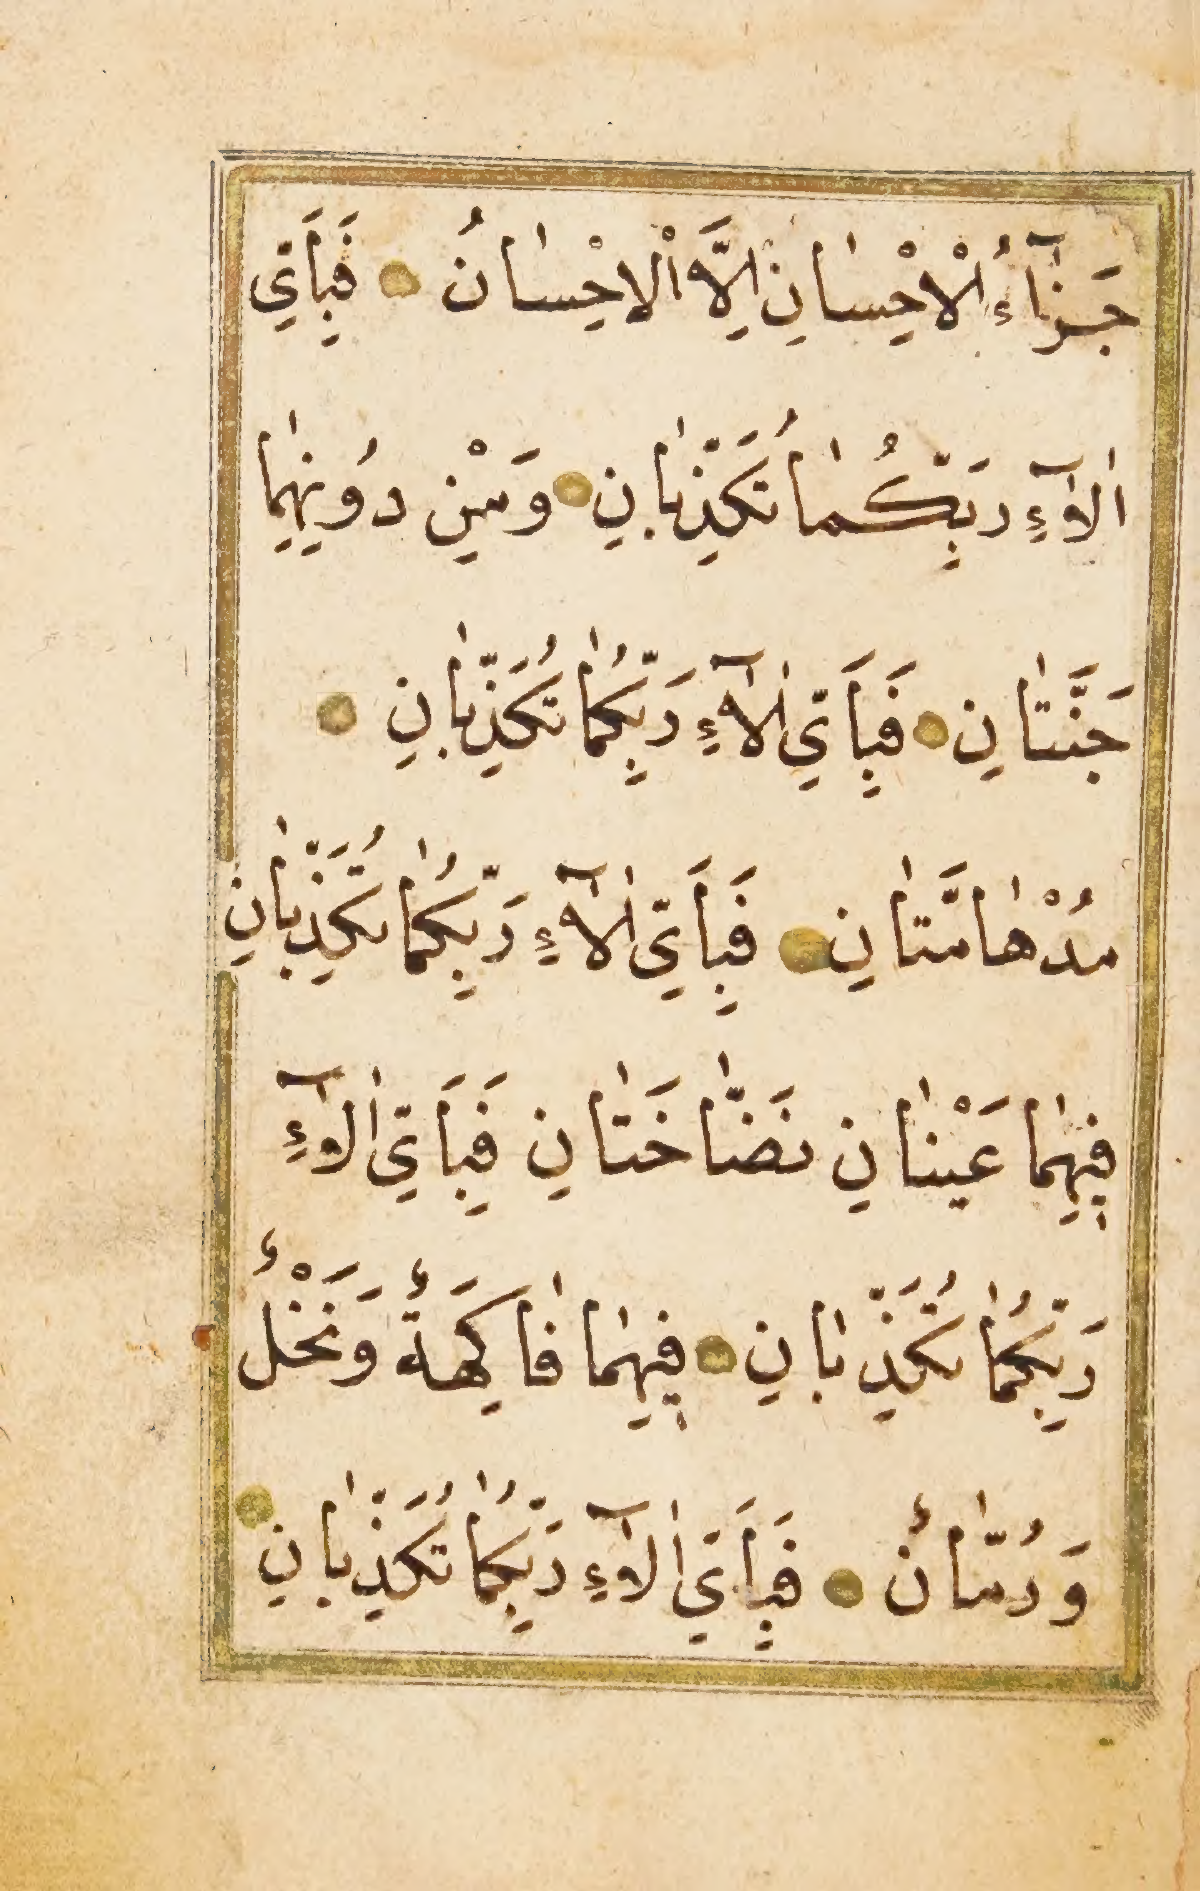 جَزٰٓاءُ الْاِحْسٰانِ اِلَّا الْاِحْسٰانُ ۝ فَبِاَيِّ
اٰلٰآءِ رَبِّكُمٰا تُكَذِّبٰانِ ۝ وَمِنْ دُونِهِمٰا
جَنَّتٰانِ ۝ فَبِاَيِّ اٰلٰآءِ رَبِّكُمٰا تُكَذِّبٰانِ ۝
مُدْهٰامَّتٰانِ ۝ فَبِاَيِّ اٰلٰآءِ رَبِّكُمٰا تُكَذِّبٰانِ
فِيهِمٰا عَيْنٰانِ نَضّٰاخَتٰانِ فَبِاَيِّ اٰلٰآءِ
رَبِّكُمٰا تُكَذِّبٰانِ ۝ فِيهِمٰا فٰاكِهَةٌ وَنَخْلٌ
وَرُمّٰانٌ ۝ فَبِاَيِّ اٰلٰآءِ رَبِّكُمٰا تُكَذِّبٰانِ ۝